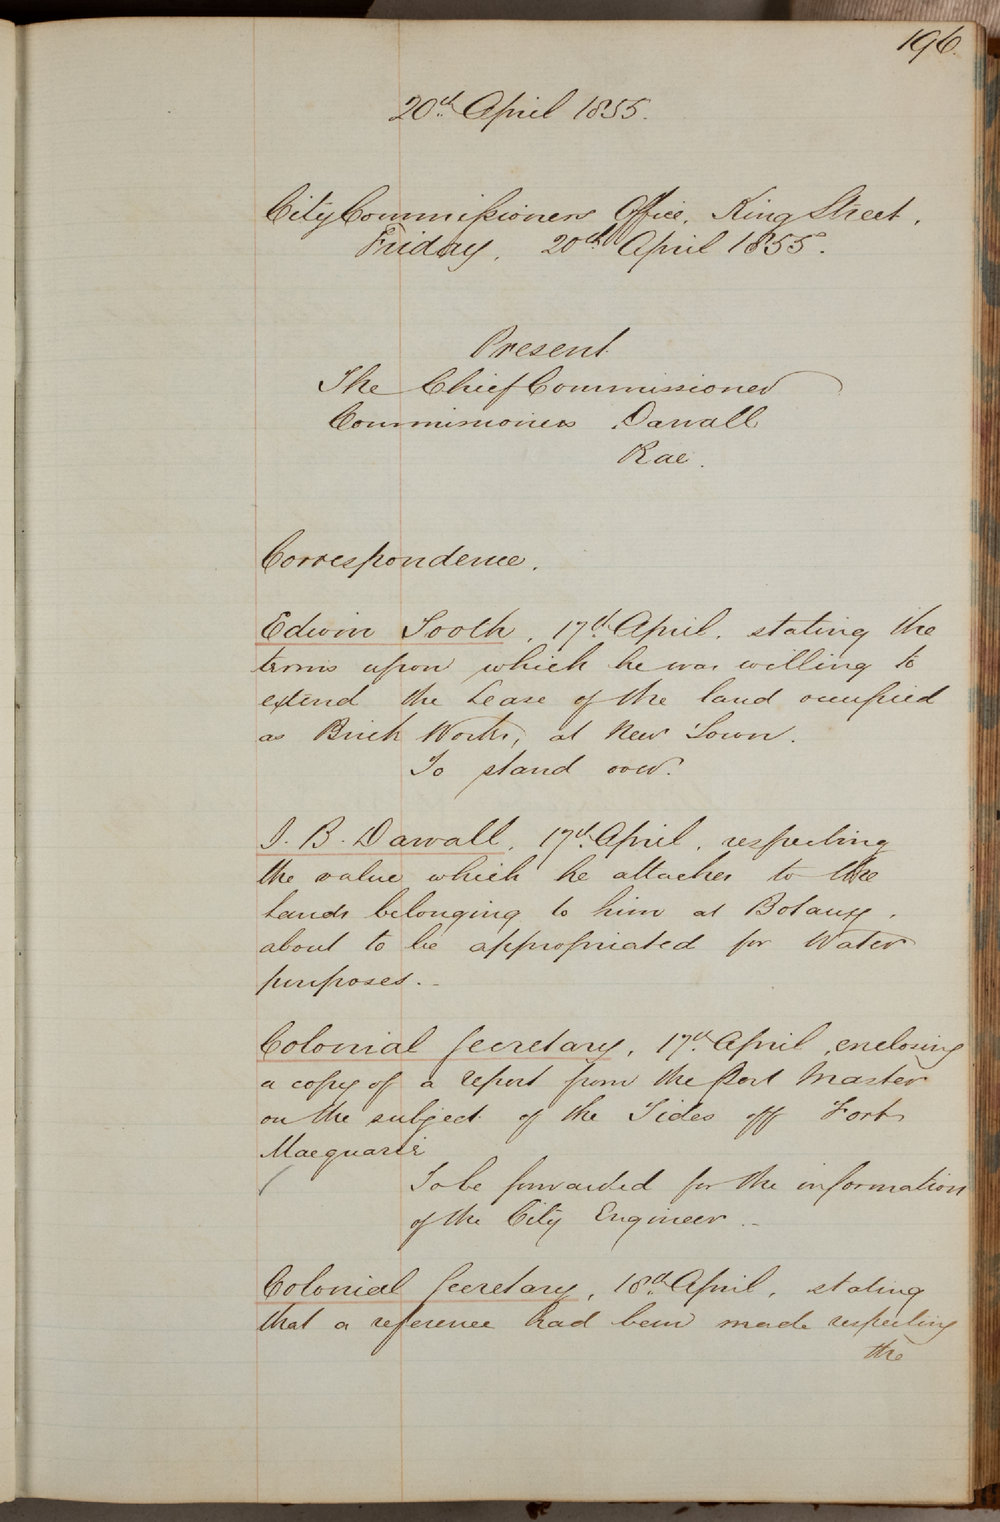 196.
20th April 1855.
City Commissioners Office, King Street,
Friday, 20th April 1855.
Present
The Chief Commissioner
Commissioners Darvall
Rae.
Correspondence.
Edwin Tooth, 17th April, stating the
terms upon which he was willing to
extend the Lease of the land occupied
as Brick Works, at New Town.
To stand over.
J. B. Darvall, 17th April, respecting
the value which he attaches to the
Lands belonging to him at Botany,
about to be appropriated for Water
purposes.-
Colonial Secretary, 17th April, enclosing
a copy of a report from the Port Master
on the subject of the Tides off Fort
Macquarie
To be forwarded for the information
of the City Engineer -
Colonial Secretary, 18th April, stating
that a reference had been made respecting
the